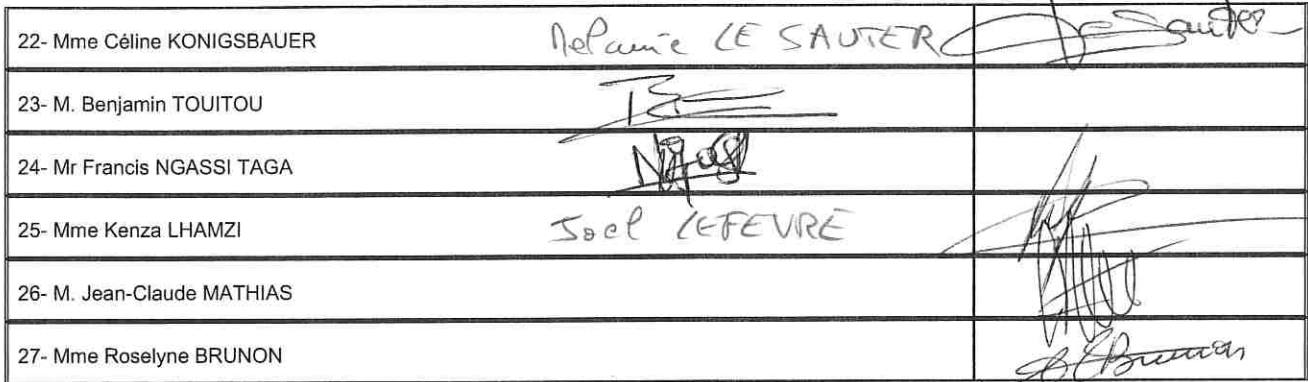 22- Mme Céline KONIGSBAUER Mélanie LE SAUTER
23- M. Benjamin TOUITOU
24- Mr Francis NGASSI TAGA
25- Mme Kenza LHAMZI Joel LEFEVRE
26- M. Jean-Claude MATHIAS
27- Mme Roselyne BRUNON